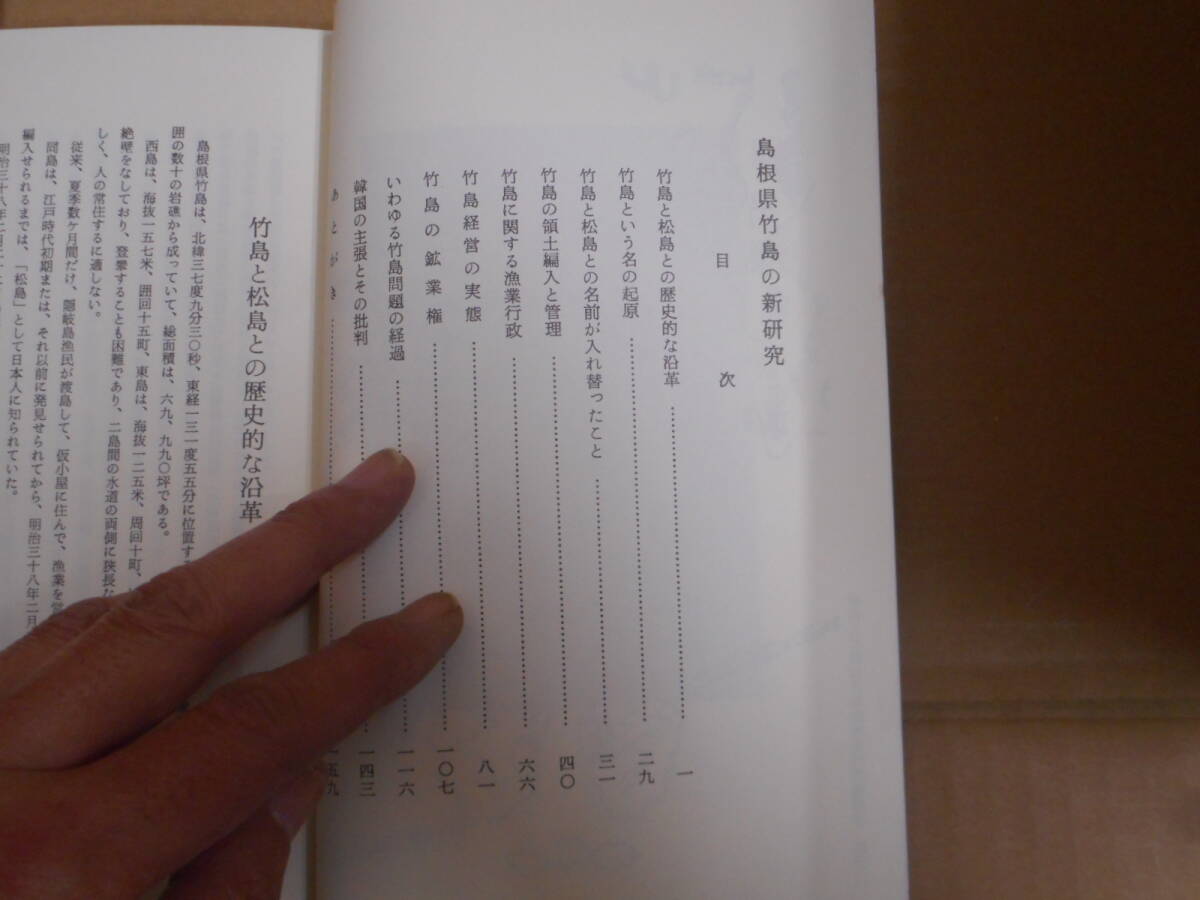 島根県竹島の新研究
目次
竹島と松島との歴史的な沿革……一
竹島という名の起原……二九
竹島と松島との名前が入れ替ったこと……三一
竹島の領土編入と管理……四〇
竹島に関する漁業行政……六六
竹島経営の実態……八一
竹島の鉱業権……一〇七
いわゆる竹島問題の経過……一一六
韓国の主張とその批判……一四三
あとがき……一五九
竹島と松島との歴史的な沿革
島根県竹島は、北緯三七度九分三〇秒、東経一三一度五五分に位置す
囲の数十の岩礁から成っていて、総面積は、六九、九九〇坪である。
西島は、海抜一五七米、囲回十五町、東島は、海抜一二五米、周回十町、
絶壁をなしており、登攀することも困難であり、二島間の水道の両側に狭長な
しく、人の常住するに適しない。
従来、夏季数ヶ月間だけ、隠岐島漁民が渡島して、仮小屋に住んで、漁業を営
同島は、江戸時代初期または、それ以前に発見せられてから、明治三十八年二月
編入せられるまでは、「松島」として日本人に知られていた。
明治三十八年二月二十